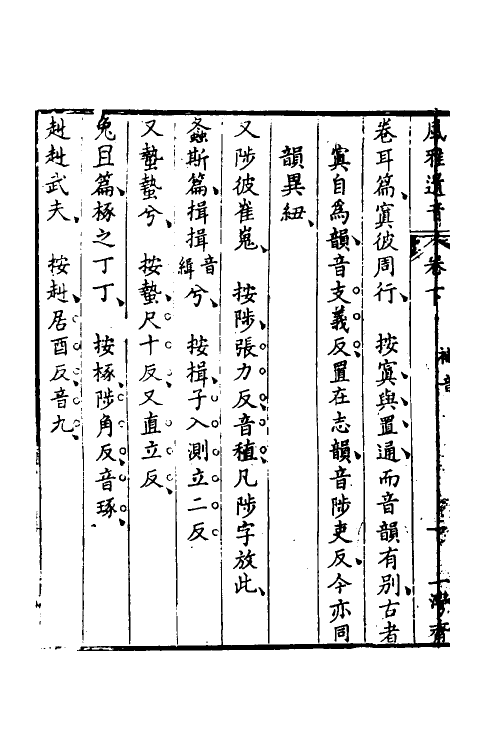 風雅遺音 卷下 補音 一灣齋
卷耳篇寘彼周行 按寘與置通而音韻有别古者
寘自爲韻音支義反置在志韻音陟吏反今亦同
韻異紐
又陟彼崔嵬 按陟張力反音稙凡陟字放此
螽斯篇揖揖音緝兮 按揖子入測立二反
又蟄蟄兮 按蟄尺十反又直立反
兔且篇椓之丁丁 按椓陟角反音琢
赳赳武夫 按赳居酉反音九